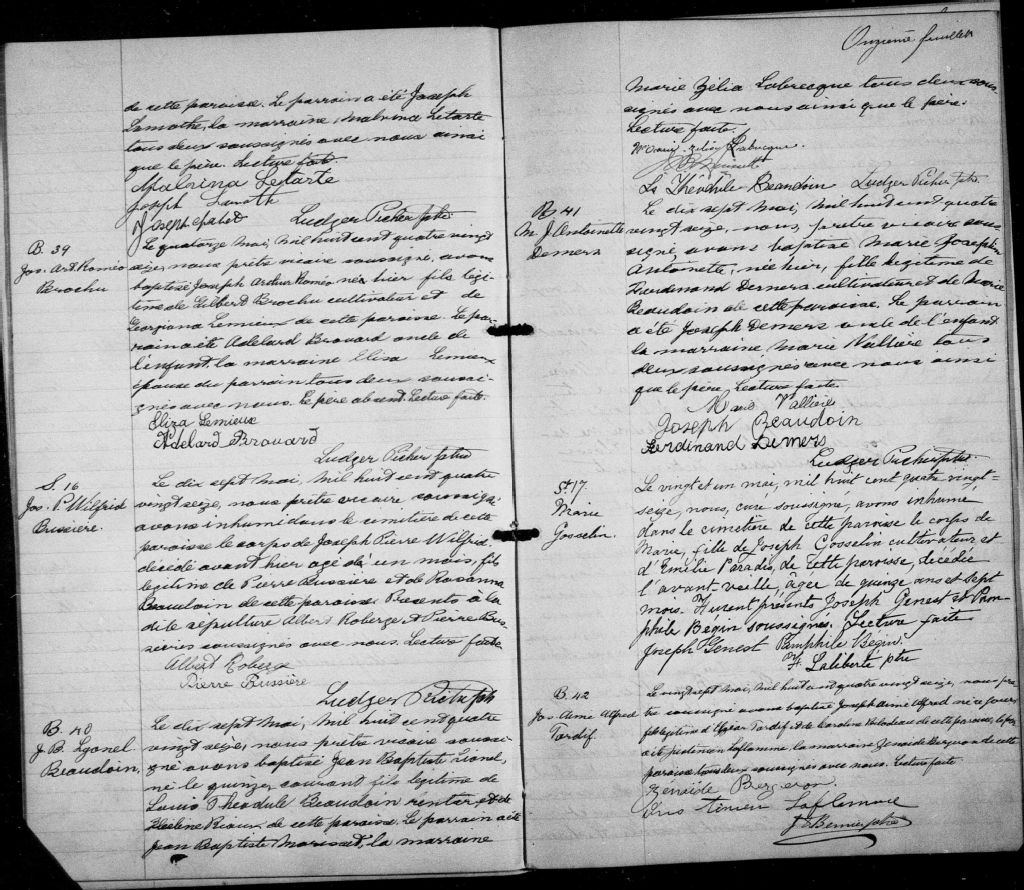 de cette paroisse. Le parrain a été Joseph
Lamothe, la marraine, Malvina Letarte
tous deux soussignés avec nous ainsi
que le père. Lecture faite.
Malvina Letarte
Joseph
Joseph
Ludger Picher ptre
B. 39
Jos. Art. Roméo
Brochu
Le quatorze Mai, Mil huit cent quatre vingt
seize, nous prêtre vicaire soussigné, avons
baptisé, Joseph Arthur Roméo né hier fils légi-
time de Gilbert Brochu cultivateur et de
Georgiana Lemieux de cette paroisse. Le par-
rain a été Adelard Brouard oncle de
l'enfant, la marraine Eliza Lemieux
épouse du parrain tous deux soussi-
gnés avec nous. Le père absent Lecture faite.
Eliza Lemieux
Adelard Brouard
Ludger Picher ptre
S. 16
Jos. P. Wilfrid
Bussière.
Le dix sept Mai, Mil huit cent quatre
vingt seize, nous prêtre vicaire soussigné
avons inhumé dans le cimetière de cette
paroisse le corps de Joseph Pierre Wilfrid
décédé avant hier agé d'un mois, fils
légitime de Pierre Bussière et de Rosanna
Beaudoin de cette paroisse. Présents à la
dite sépulture Albert Roberge et Pierre Bus-
sières soussignés avec nous. Lecture faite
Albert Roberge
Pierre Bussière
Ludger Picher ptre
B. 40
J. B. Lyonel
Beaudoin.
Le dix sept Mai, Mil huit cent quatre
vingt seize, nous prêtre vicaire soussi-
gné avons baptisé Jean Baptiste Lionel,
né le quinze courant fils légitime de
Louis Théodule Beaudoin rentier, et de
de cette paroisse. Le parrain a été
Jean Baptiste Morisset, la marraine
Onzième feuillet
Marie Zélia Labrecque tous deux sous-
signés avec nous ainsi que le père.
Lecture faite.
Zélia Labrecque.
Ls Théodule Beaudoin Ludger Picher ptre
B. 41
M. J. Antoinette
Demers
Le dix sept Mai, Mil huit cent quatre
vingt seize, nous, prêtre vicaire sous-
signé, avons baptisé Marie Joseph
Antoinette, née hier, fille légitime de
Ferdinand Demers cultivateur et de Marie
Beaudoin de cette paroisse. Le parrain
a été Joseph Demers oncle de l'enfant
la marraine Marie Vallière tous
deux soussignés avec nous ainsi
que le père, Lecture faite.
Marie Vallière
Joseph Beaudoin
Ferdinand Demers
Ludger Picher ptre
S. 17
Marie
Gosselin.
Le vingt et un mai, mil huit cent quatre vingt-
seize, nous, curé soussigné, avons inhumé
dans le cimetière de cette paroisse le corps de
Marie, fille de Joseph Gosselin cultivateur et
d'Emilie Paradis, de cette paroisse, décédée
l'avant-veille, âgée de quinze ans et sept
mois. Furent présents Joseph Genest et Pam-
phile Bégin soussignés. Lecture faite
Joseph Genest Pamphile Bégin.
F. Laliberté ptre
B. 42
Jos. Aimé Alfred
Tardif.
Le vingt sept Mai, Mil huit cent quatre vingt seize, nous prê-
tre soussigné avons baptisé Joseph Aimé Alfred né ce jour,
fils légitime d' Tardif et de Caroline de cette paroisse, le parrain
a été Laflamme, la marraine Zénaïde Bergeron de cette
paroisse tous deux soussignés avec nous. Lecture faite
Zenaide Bergeron
Laflamme
Bernier ptre